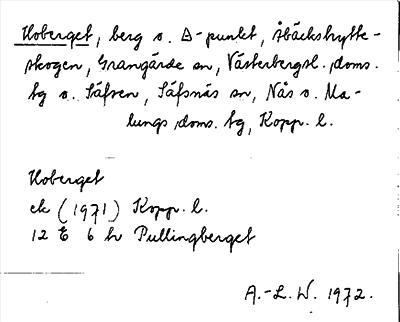 Hoberget, berg o. Δ-punkt, Åbäckshytte-
skogen, Grangärde sn, Västerbergsl. doms.
tg o. Säfsen, Säfsnäs sn, Nås o. Ma-
lungs doms. tg, Kopp. l.
Hoberget
ek (1971) Kopp. l.
12 E 6 h Pullingberget
A.-L. W. 1972.